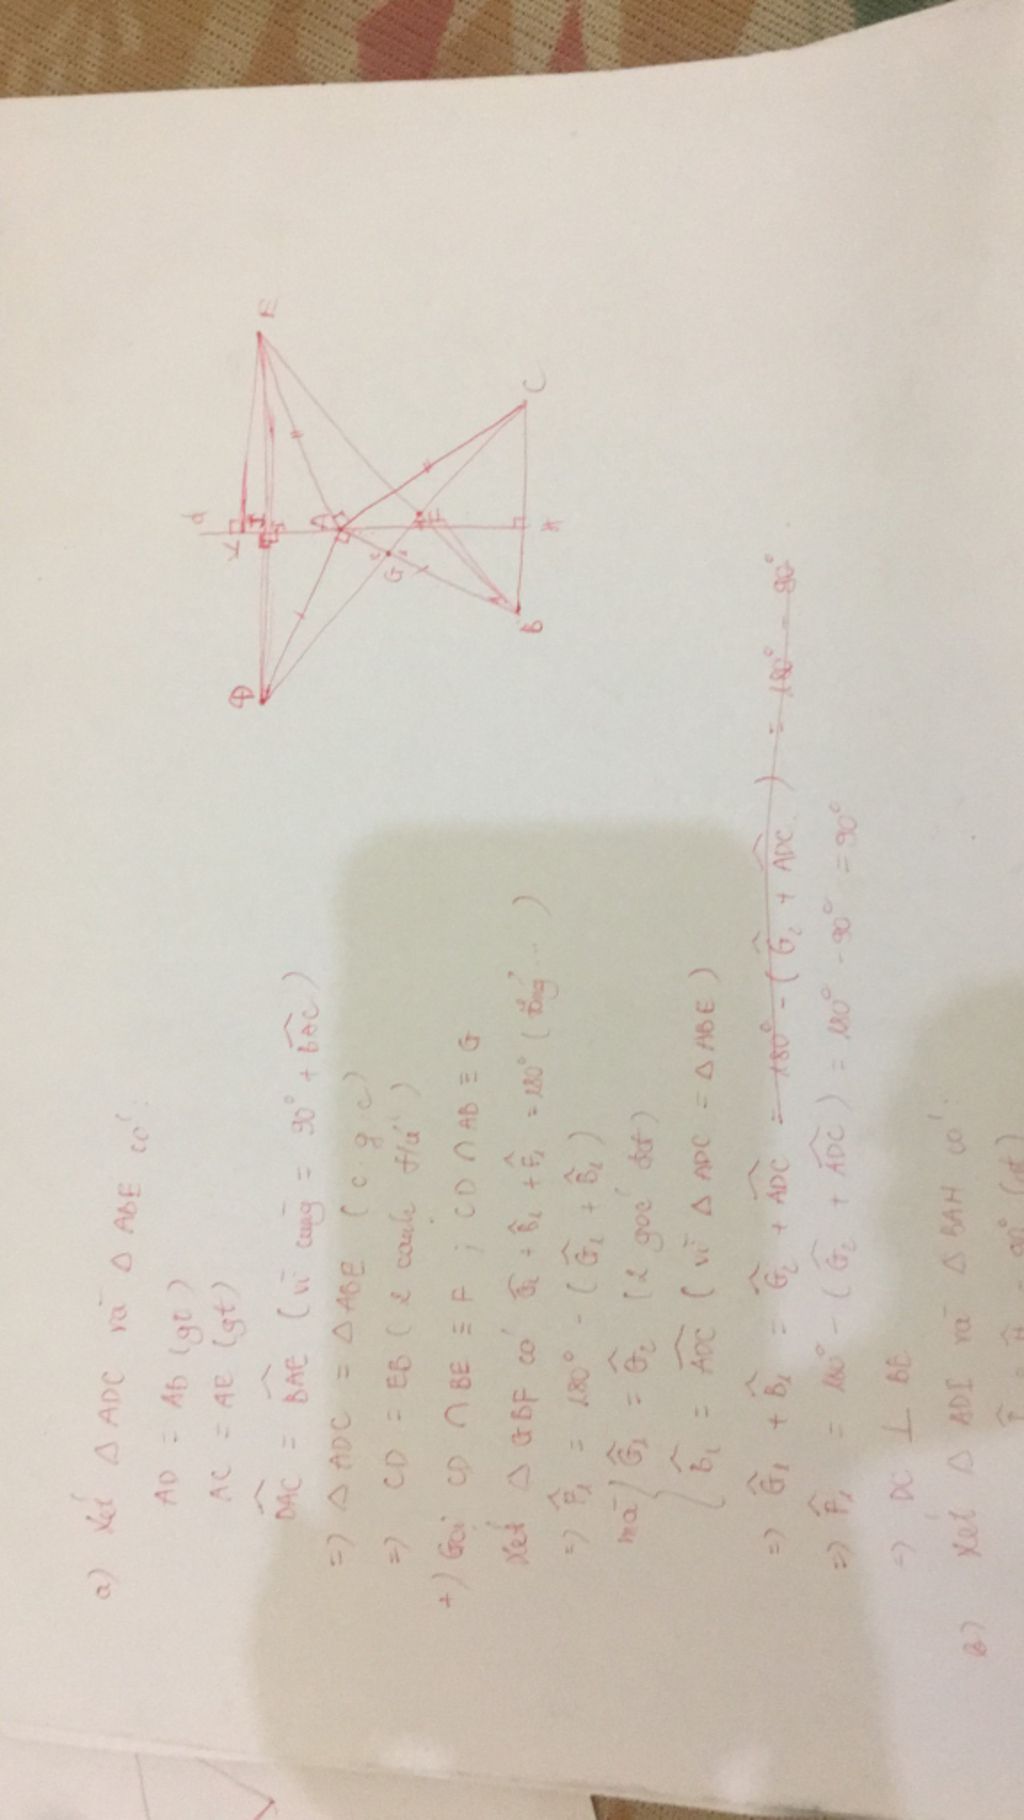 D
E
d
I
A
G
F
B
H
C
a) Xét Δ ADC và Δ ABE có:
AD = AB (gt)
AC = AE (gt)
DAC = BAE (vì cùng = 90° + BAC)
=) Δ ADC = Δ ABE (c.g.c)
=) CD = EB (2 cạnh t/ú)
+) Gọi CD ∩ BE ≡ F ; CD ∩ AB ≡ G
Xét Δ GBF có Ĝ₁ + B̂₁ + F̂₁ = 180° (tổng ... )
=) F̂₁ = 180° - (Ĝ₁ + B̂₁)
mà { Ĝ₁ = Ĝ₂ (2 góc đđ)
B̂₁ = ADC (vì Δ ADC = Δ ABE)
=) Ĝ₁ + B̂₁ = Ĝ₂ + ADC = 180° - (Ĝ₂ + ADC) = 180° - 90°
=) F̂₁ = 180° - (Ĝ₂ + ADC) = 180° - 90° = 90°
=) DC ⊥ BE
b) Xét Δ ADI và Δ BAH có:
= 90° (gt)